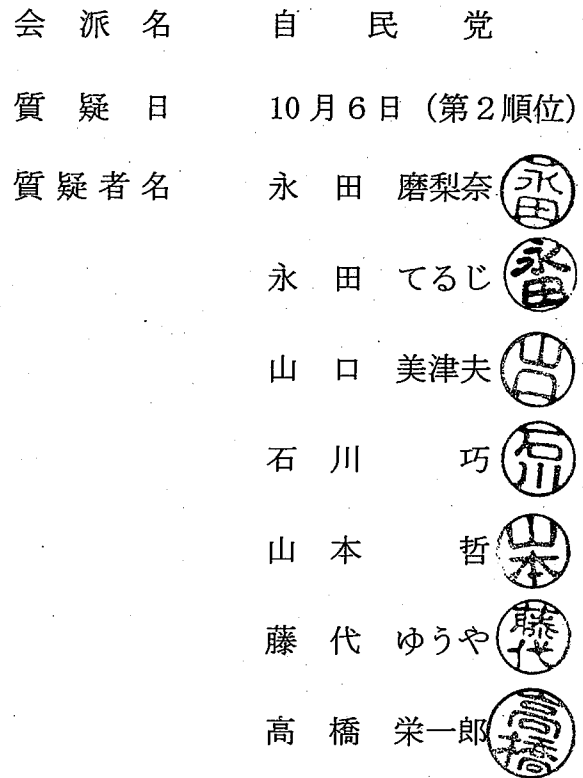 会派名 自民党
質疑日 10月6日（第2順位）
質疑者名 永田 磨梨奈 永田
永田 てるじ 永田
山口 美津夫 山口
石川 巧 石川
山本 哲 山本
藤代 ゆうや 藤代
高橋 栄一郎 高橋